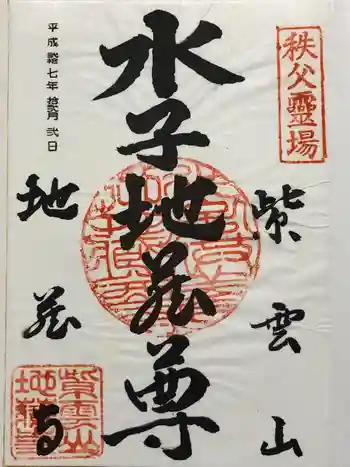 秩父靈場
紫雲山
水子地蔵尊
地蔵寺
平成拾七年拾貳月貳日
紫雲山
地蔵寺